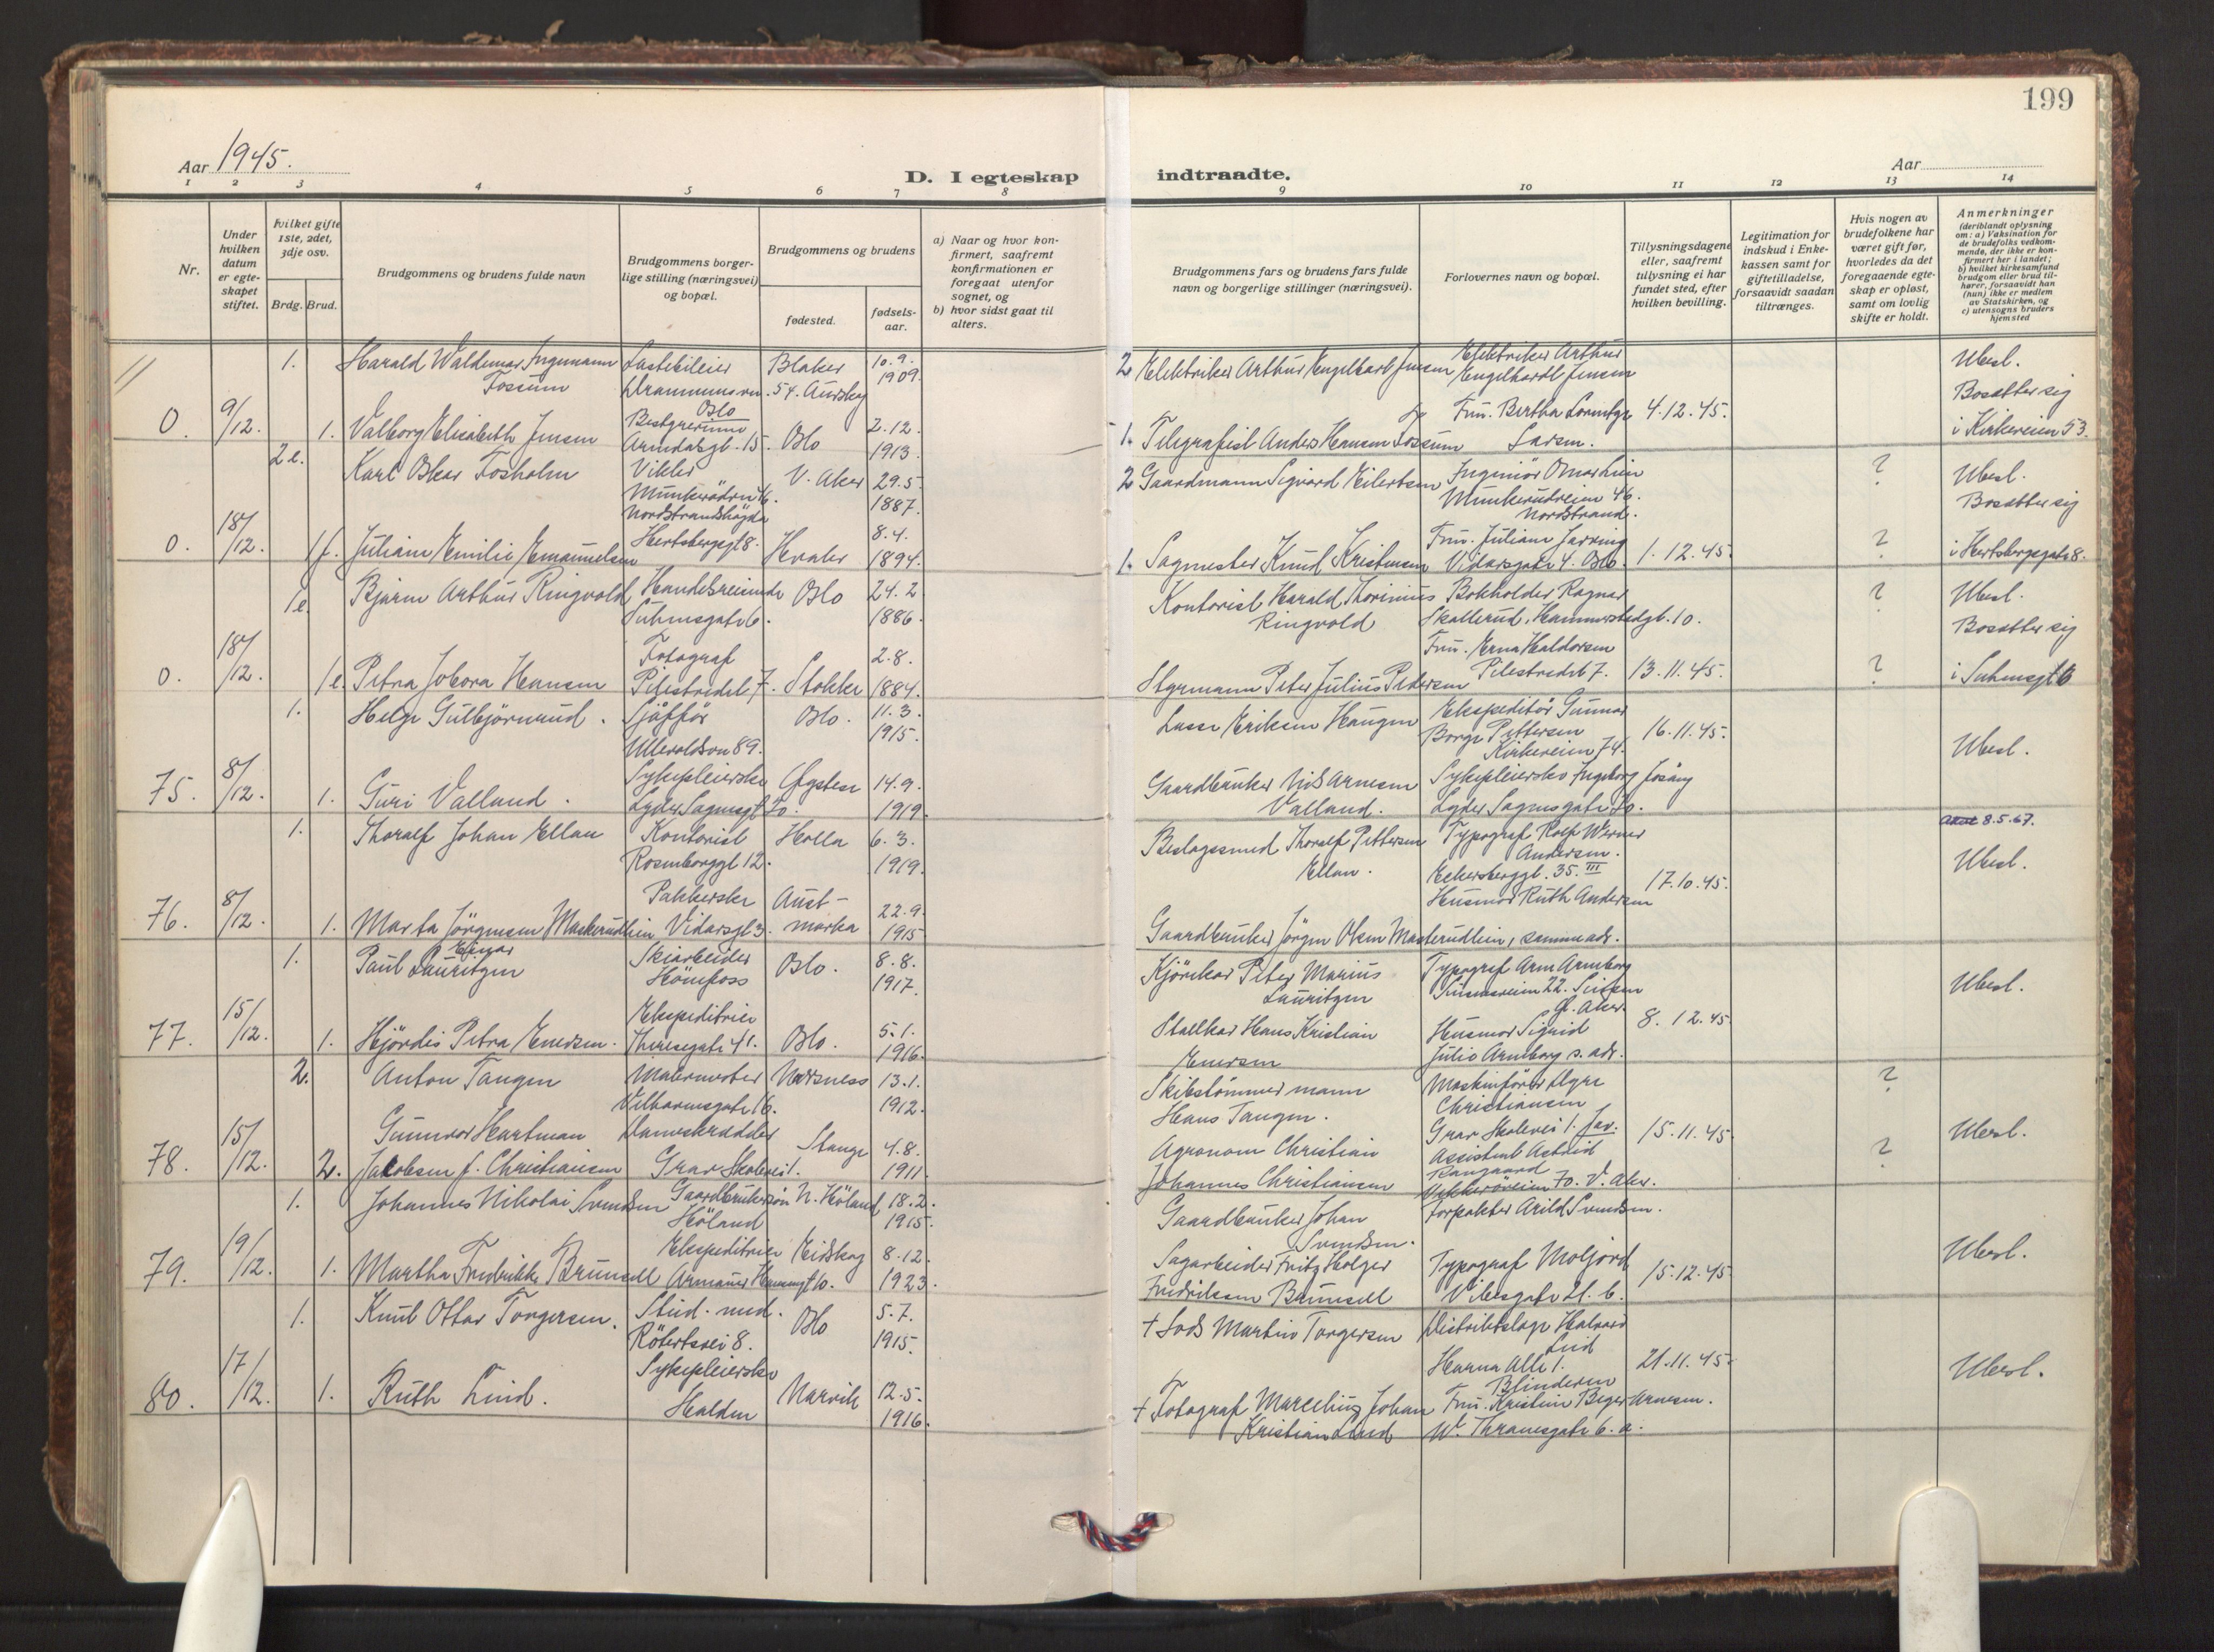 199
Aar 1945.
Aar
D. I egteskap indtraadte.
1 2 3 4 5 6 7 8 9 10 11 12 13 14
Nr.
Under hvilken datum er egteskapet stiftet.
Hvilket gifte 1ste, 2det, 3dje osv.
Brdg. Brud.
Brudgommens og brudens fulde navn
Brudgommens borgerlige stilling (næringsvei) og bopæl.
Brudgommens og brudens
fødested.
fødselsaar.
a) Naar og hvor konfirmert, saafremt konfirmationen er foregaat utenfor sognet, og
b) hvor sidst gaat til alters.
Brudgommens fars og brudens fars fulde navn og borgerlige stillinger (næringsvei).
Forlovernes navn og bopæl.
Tillysningsdagene eller, saafremt tillysning ei har fundet sted, efter hvilken bevilling.
Legitimation for indskud i Enkekassen samt for giftetilladelse, forsaavidt saadan tiltrænges.
Hvis nogen av brudefolkene har været gift før, hvorledes da det foregaaende egteskap er opløst, samt om lovlig skifte er holdt.
Anmerkninger (deriblandt oplysning om: a) Vaksination for de brudefolks vedkommende, der ikke er konfirmert her i landet; b) hvilket kirkesamfund brudgom eller brud tilhører, forsaavidt han (hun) ikke er medlem av Statskirken, og c) utensogns bruders hjemsted
1. Harald Waldemar Ingemann Fossum Lastebileier Drammensvn. 54. Oslo Blaker Aurskog 10.9. 1909 2 Elektriker Arthur Engelhart Jensen Elektriker Arthur Engelhardt Jensen Ubesl.
0. 9/12. 1. Valborg Elisabeth Jensen Bestyrerinne Arendalsgt. 15. Oslo 2.12. 1913. 1. Telegrafist Anders Hansen Fossum Fru. Bertha Larsen. 4.12.45. Bosetter sig i Kirkeveien 53.
2 e. Karl Oskar Fosholm Nordstrandshøgda V. Aker 29.5. 1887. 2 Gaardmann Sigvard Eilertsen Ingeniør Omar Lien Munkerudveien 46. Nordstrand. ? Ubesl.
0. 18/12. 1 f. Juliane Emilie Emanuelsen Hertzbergsgt 8. Hvaler 8.4. 1894. 1. Sagmester Knud Kristensen Fru. Juliane Vidarsgate 4. Oslo. 1.12.45. ? Bosetter sig i Hertzbergsgate 8.
1 e. Bjarne Arthur Ringvold Handelsreisende Suhmsgate 6. Oslo 24.2 1886. Kontorist Harald Thorinius Ringvold Bokholder Ragnar Skallerud, Hammerstadgt. 10. ? Ubesl.
0. 18/12. 1 e. Petra Jobora Hansen Fotograf Pilestredet 7. Stokke 2.8. 1884. Styrmann Peter Julius Pedersen Fru. Erna Haldorsen Pilestredet 7. 13.11.45. ? Bosetter sig i Suhmsgt 6
1. Helge Gulbjörnrud. Sjåffør Ullevaldsvn 89. Oslo. 11.3. 1915. Lasse Eriksen Haugen Ekspeditør Gunnar Borge Pettersen Kirkeveien 74. 16.11.45. Ubesl.
75. 8/12. 1. Guri Valland. Sykepleierske Lyder Sagensgt 20. Øystese 14.9. 1919. Gaardbruker Nils Arnesen Valland. Sykepleierske Ingeborg Jøsang Lyder Sagensgate 20.
1. Thoralf Johan Ellan Kontorist Rosenborggt 12. Holla 6.3. 1919. Beslagssmed Thoralf Pettersen Ellan. Typograf Rolf Werner Andersen. Eckersberggt. 35. III 8.5.67. Ubesl.
76. 8/12. 1. Marta Jörgensen Maskerudlien Pakkerske Vidarsgt 3. Austmarka 22.9. 1915 Gaardbruker Jörgen Olsen Maskerudlien, Husmor Ruth Andersen samme adr. 17.10.45.
1. Paul Einar Lauritzen Skiarbeider Hönefoss Oslo. 8.8. 1917. Kjörekar Peter Marius Lauritzen Typograf Arne Arneberg 22. Ubesl.
77. 15/12. 1. Hjördis Petra Enersen. Ekspeditrice Theresegate 41. Oslo. 5.1. 1916. Stallkar Hans Kristian Enersen Husmor Sigrid Julie Arneberg s. adr. 8.12.45
2. Anton Tangen Malermester Vilhelmsgate 16. Nærsness 13.1. 1912. Skibstömmermann Hans Tangen. Maskinfører Christiansen Grav Skolevei 1. Jar. ?
78. 15/12. 2. Gunnvor Hartman Jakobsen f. Christiansen Dameskredder Grav Skolevei 1. Stange 4.8. 1911. Agronom Christian Johannes Christiansen Assistent Astrid Vekkeröveien 70. V. Aker. 15.11.45 ? Ubesl.
1. Johannes Nikolai Svendsen Gaardbrukersön Höland N. Höland 18.2. 1915. Gaardbruker Johan Svendsen. Forpakter Arild Svendsen.
79. 19/12. 1. Martha Fredrikke Brunsell Ekspeditrice Armauer Hansensgt 10. Eidskog 8.12. 1923. Sagarbeider Fritz Holger Fredriksen Brunsell Typograf Moljord Vibesgate 21. b. 15.12.45 Ubesl.
1. Knut Ottar Torgersen. Stud. med. Röbertsvei 8. Oslo 5.7. 1915. + Lods Martin Torgersen Distriktslege Halvard Lind Hanna Alle 1. Blindern
80. 17/12. 1. Ruth Lind. Sykepleierske Halden Narvik 12.5. 1916. + Fotograf Marcelius Johan Kristian Lind Fru. Kristine Beyer-Arnesen. W. Thranesgate 6. a. 21.11.45. Ubesl.